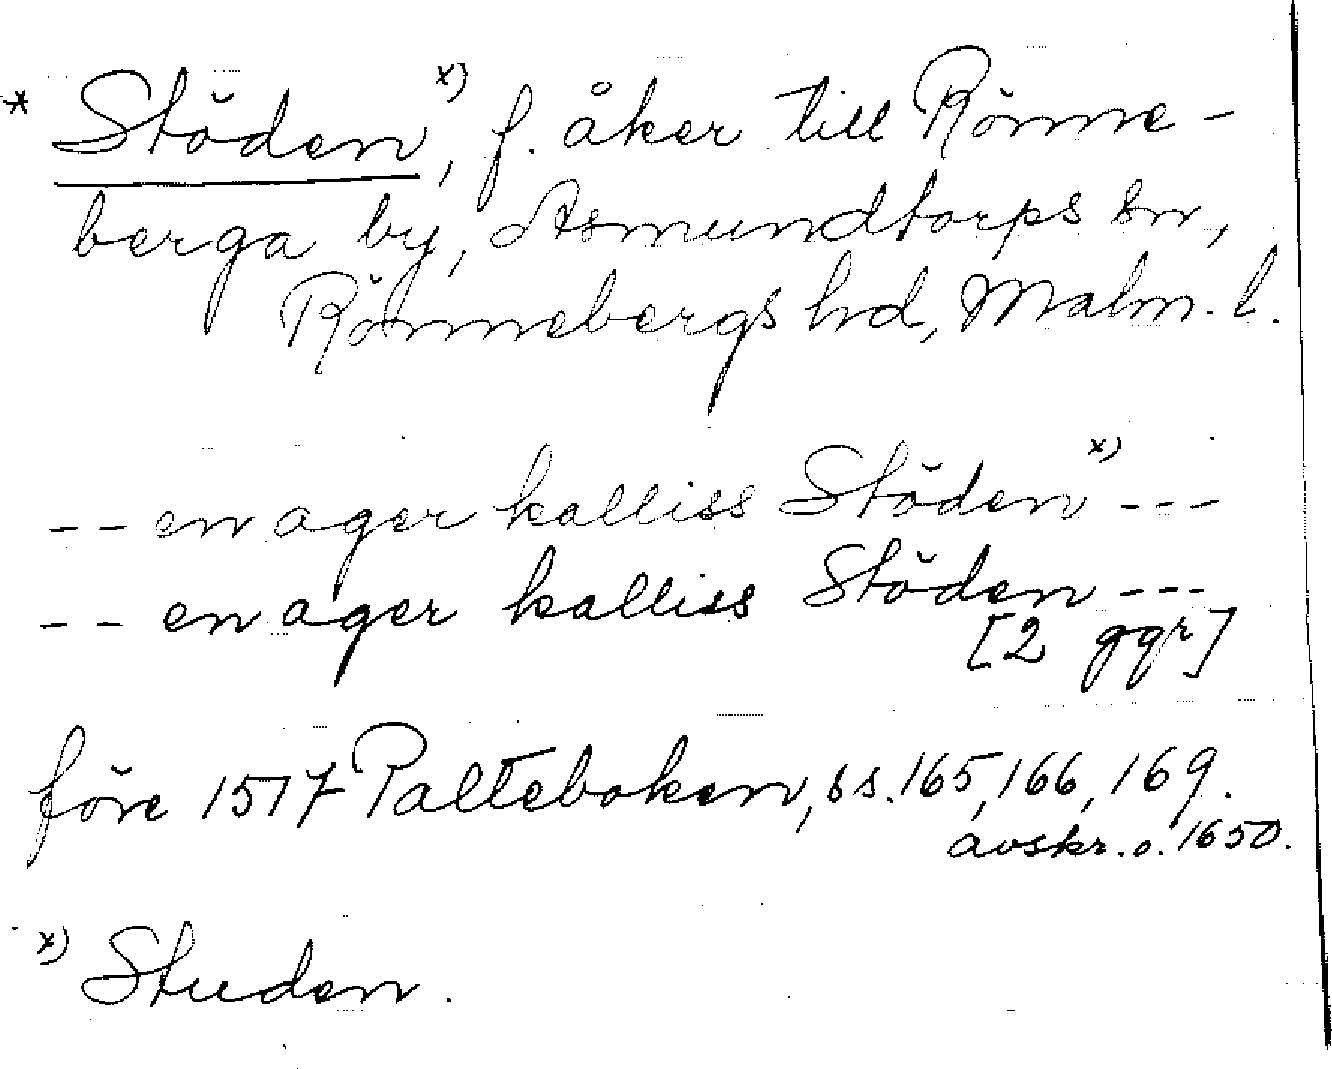 * Stöden x), f. åker till Rönne-
berga by, Asmundtorps sn,
Rönnebergs hd, Malm. l.
-- en ager kalliss Stöden x) ---
-- en ager kalliss Stöden ---
[2 ggr]
före 1517 Palteboken, ss. 165, 166, 169.
avskr. o. 1650.
x) Studen.